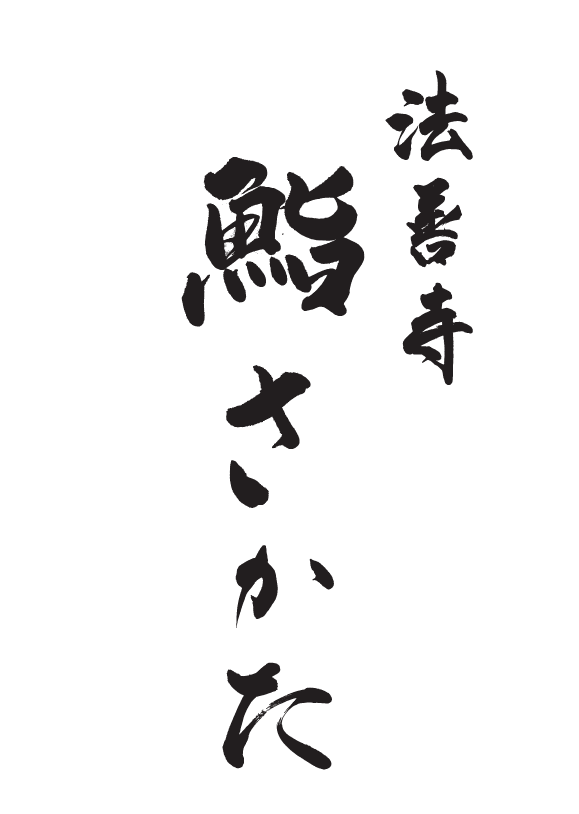 法善寺
鮨さかた